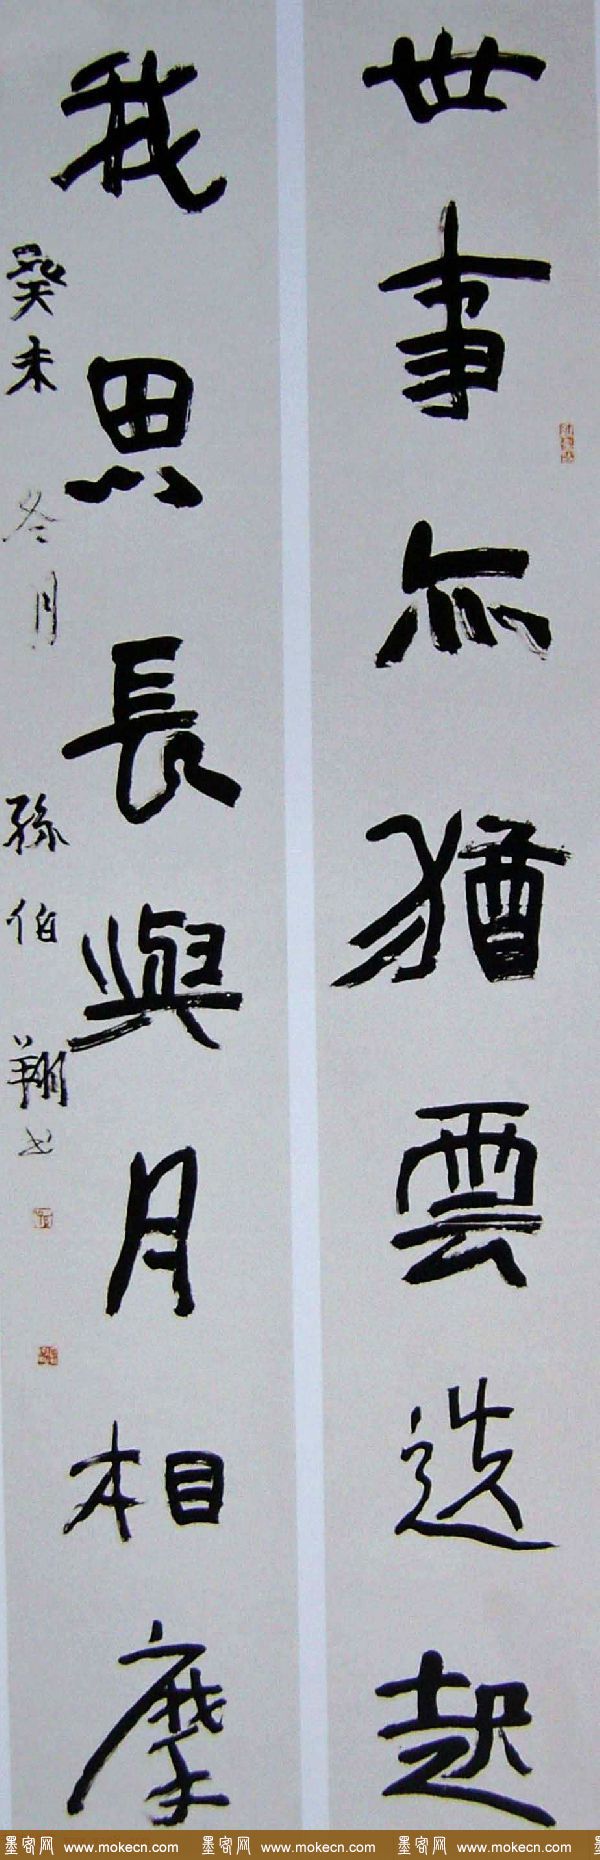 世事亦猶雲迭起
我思長與月相摩
癸未冬月孫伯翔書
墨客网 www.mokecn.com 墨客网 www.mokecn.com 墨客网 www.mokecn.com 墨客